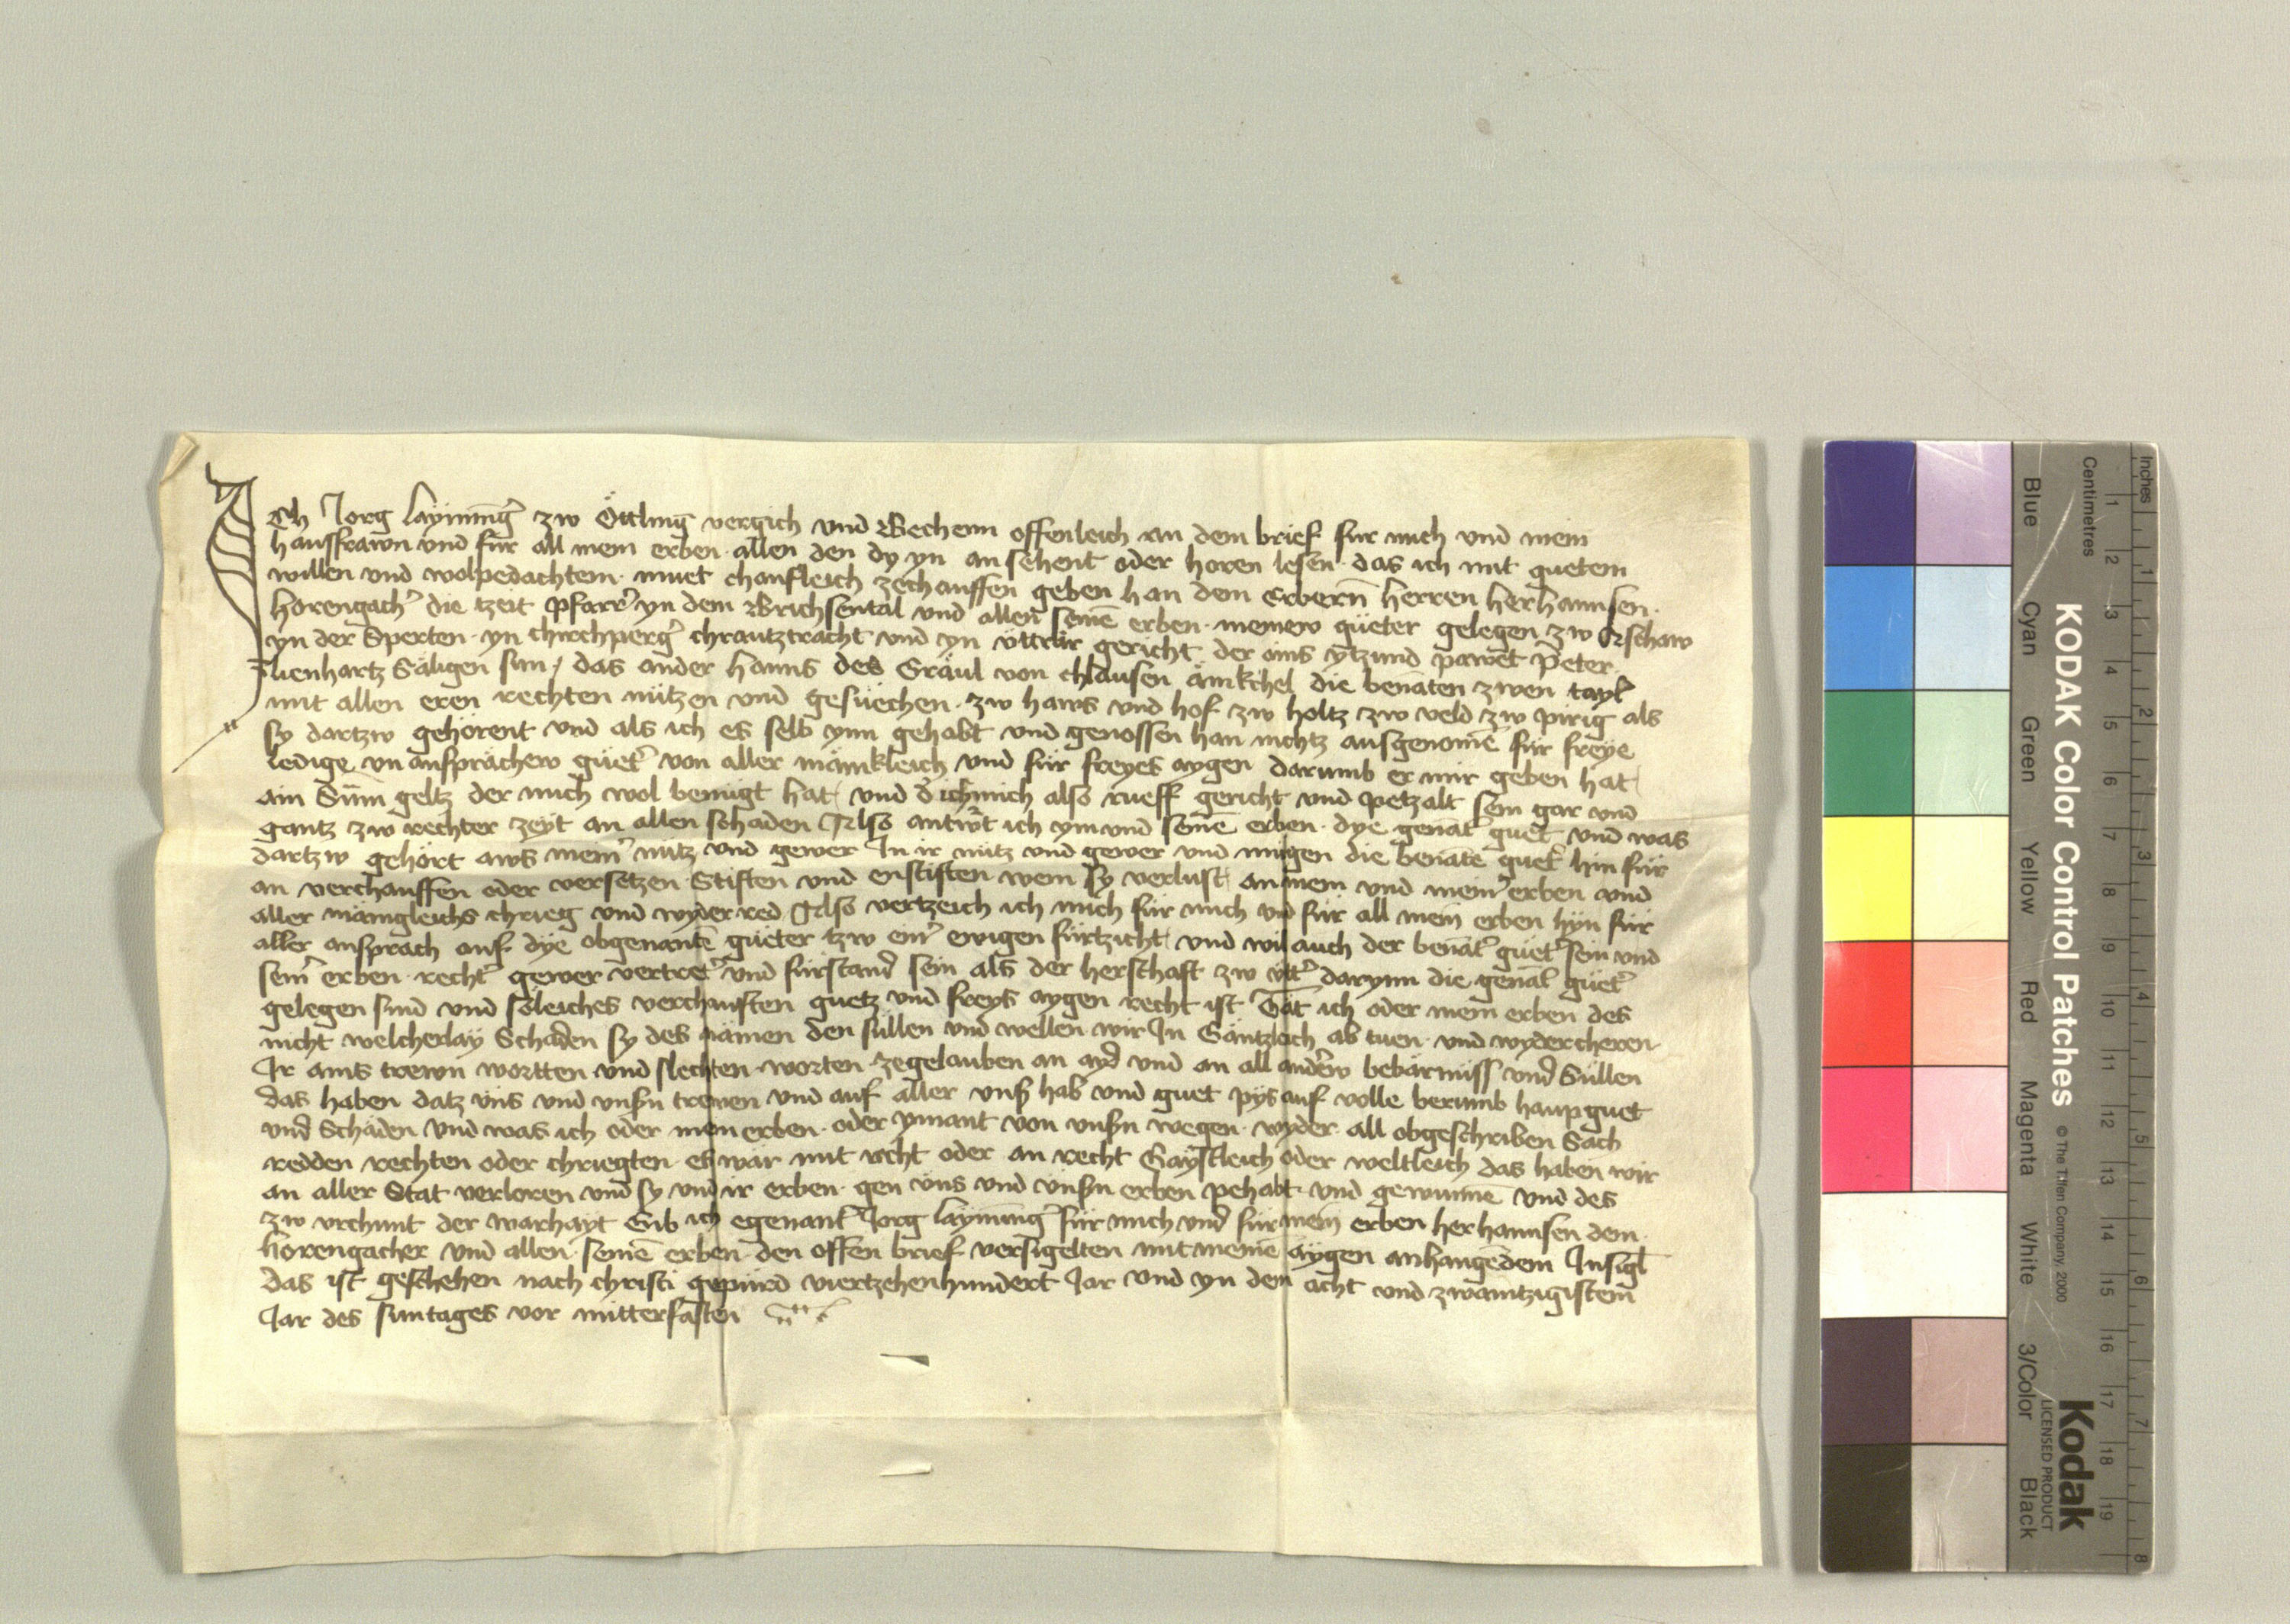 Ich Jorg layming̅ zw Ötling vergich vnd Bechenn offenleich an dem brief fur mich vnd mein
hausfrawn vnd für all mein erben allen den dy yn an sehent oder horen lesen das ich mit guetem
willen vnd wolpedachtem muet chaufleich zechauffen geben han dem Erbern̅ herren her hannsen
horengach̉ die tzeit pfarr̉ yn dem Brichsental vnd allen seine̅ erben meinew güeter gelegen zw Aschaw
yn der Sperten yn chirchperg̉ chrautztracht vnd yn ütt̉är gericht der ains ytzund pawet peter
lienhartz Säligen sun / das ander hanns des Gräul von chlausen ämkchel die bena̅ten zwen tayl̉
mit allen eren rechten nützen vnd gesüechen zw haws vnd hof zw holtz zw veld zw pirig als
sy dartzw gehörent vnd als ich es selb ynn gehabt vnd genossen han nichtz ausgenome̅ für freye
ledige vn ansprächew güet̉ von aller mänikleich vnd für freyes aygen darumb er mir geben hat
ain Su̅m geltz der mich wol benügt hat vnd d̉ ich mich also rueff gericht vnd petzalt sein gar vnd
gantz zw rechter zeyt an allen schaden Also antw̉t ich ym vnd seine̅ erben dye gena̅t̉ guet̉ vnd was
dartzw gehört aws mein̉ nütz vnd gewer In ir nütz vnd gewer vnd mügen die bena̅te̅ guet̉ hin für
an verchauffen oder versetzen Stiften vnd enstiften wem sy verlust an mein vnd mein̉ erben vnd
aller mänigleichs chrieg vnd wyder red Also vertzeich ich mich für mich vnd für all mein erben hyn für
aller ansprach auf dye obgenante̅ güeter tzw ein̉ ewigen fürtzicht vnd wil auch der bena̅t̉ güet̉ sein vnd
sein̉ erben recht̉ gewer vertret̉ vnd fürstand̉ sein als der herschaft zw ütt̉ darynn die gena̅t̉ güet̉
gelegen sind vnd söleiches verchauften guetz vnd freys aygen recht ist Tät ich oder mein erben des
nicht welcherlay Schaden sy des nämen den süllen vnd wellen wir In Gäntzleich ab tuen vnd wydercheren
Ir ains trewn wortten vnd slechten worten zegelauben an ayd vnd an all and̉ew bebärnüss vnd Süllen
das haben datz vns vnd vnsn̉ trewen vnd auf aller vns̉ hab vnd guet pys auf volle berumb haupguet
vnd Schaden vnd was ich oder mein erben oder ymant von vnsn̉ wegen wyder all obgeschriben Sach
redden rechten oder chriegten es wär mit recht oder an recht Gaystleich oder weltleich das haben wir
an aller Stat verloren vnd sy vnd ir erben gen vns vnd vnsn̉ erben pehabt vnd gewunne̅ vnd des
zw vrchunt der warhayt Gib ich egenant̉ Jorg layming̉ für mich vnd für mein erben her hannsen dem
horengacher vnd allen seine̅ erben den offen brief versigelten mit meine̅ aygen anhange̅dem Insigl̉
das ist geschehen nach christi gepürd viertzehenhundert Jar vnd yn dem acht vnd zwaintzigistem̅
Jar des suntages vor mitterfasten
KODAK Color Control Patches © The Tiffen Company, 2000
Kodak
LICENSED PRODUCT
Inches 1 2 3 4 5 6 7 8
Centimetres 1 2 3 4 5 6 7 8 9 10 11 12 13 14 15 16 17 18 19
Blue Cyan Green Yellow Red Magenta White 3/Color Black